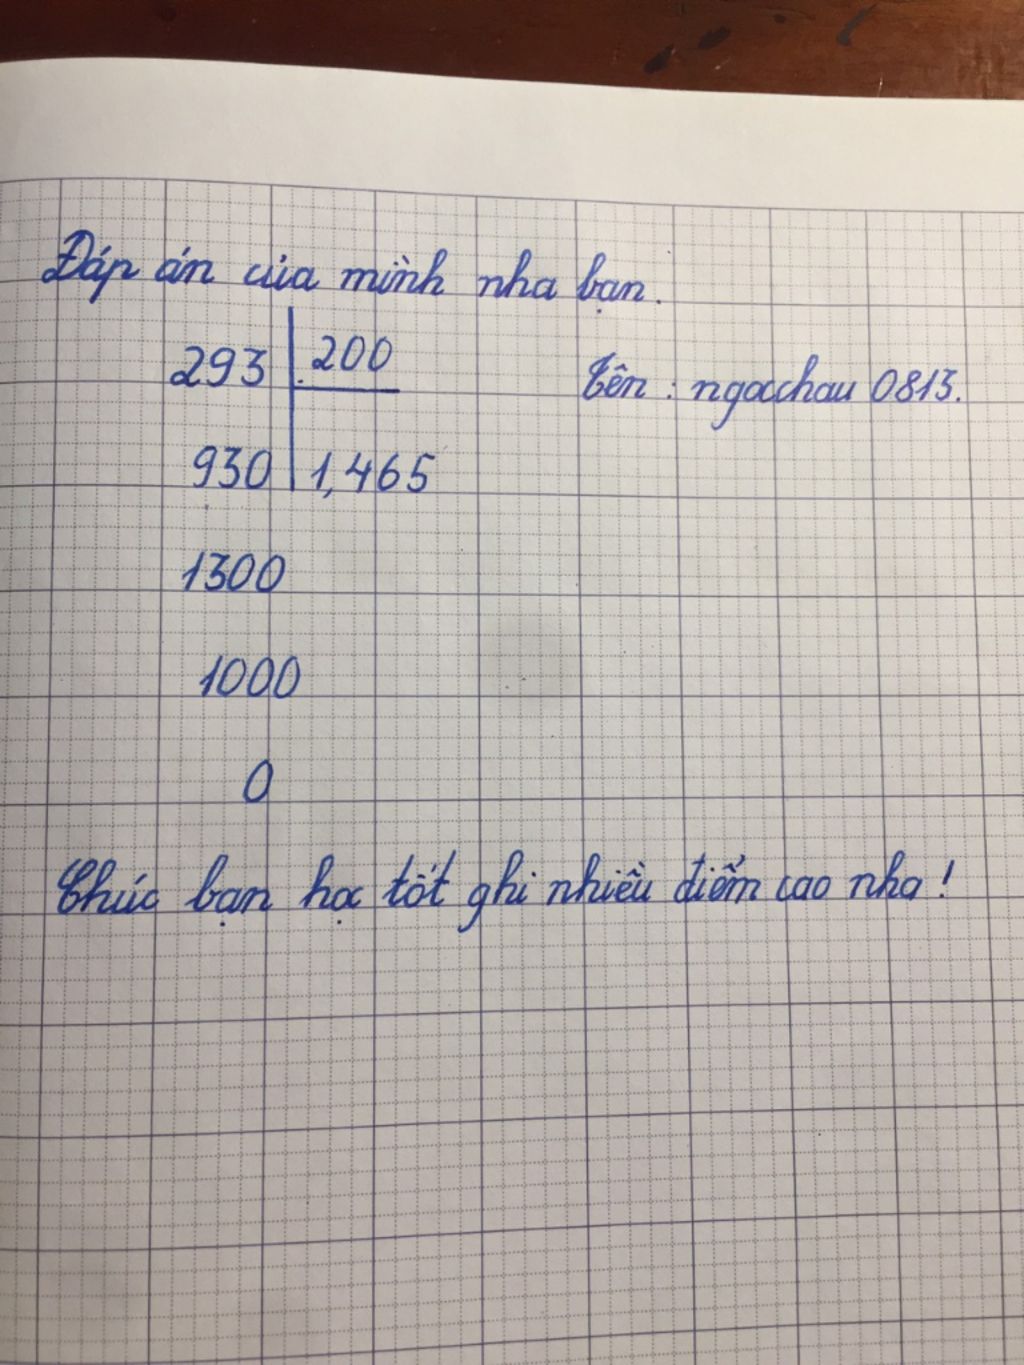 Đáp án của mình nha bạn.
293 200
Tên : ngocchau 0813.
930 1,465
1300
1000
0
Chúc bạn học tốt ghi nhiều điểm cao nha !